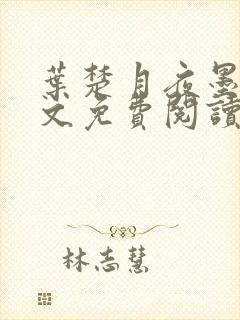 葉楚月夜墨
文免費閱讀
林志慧